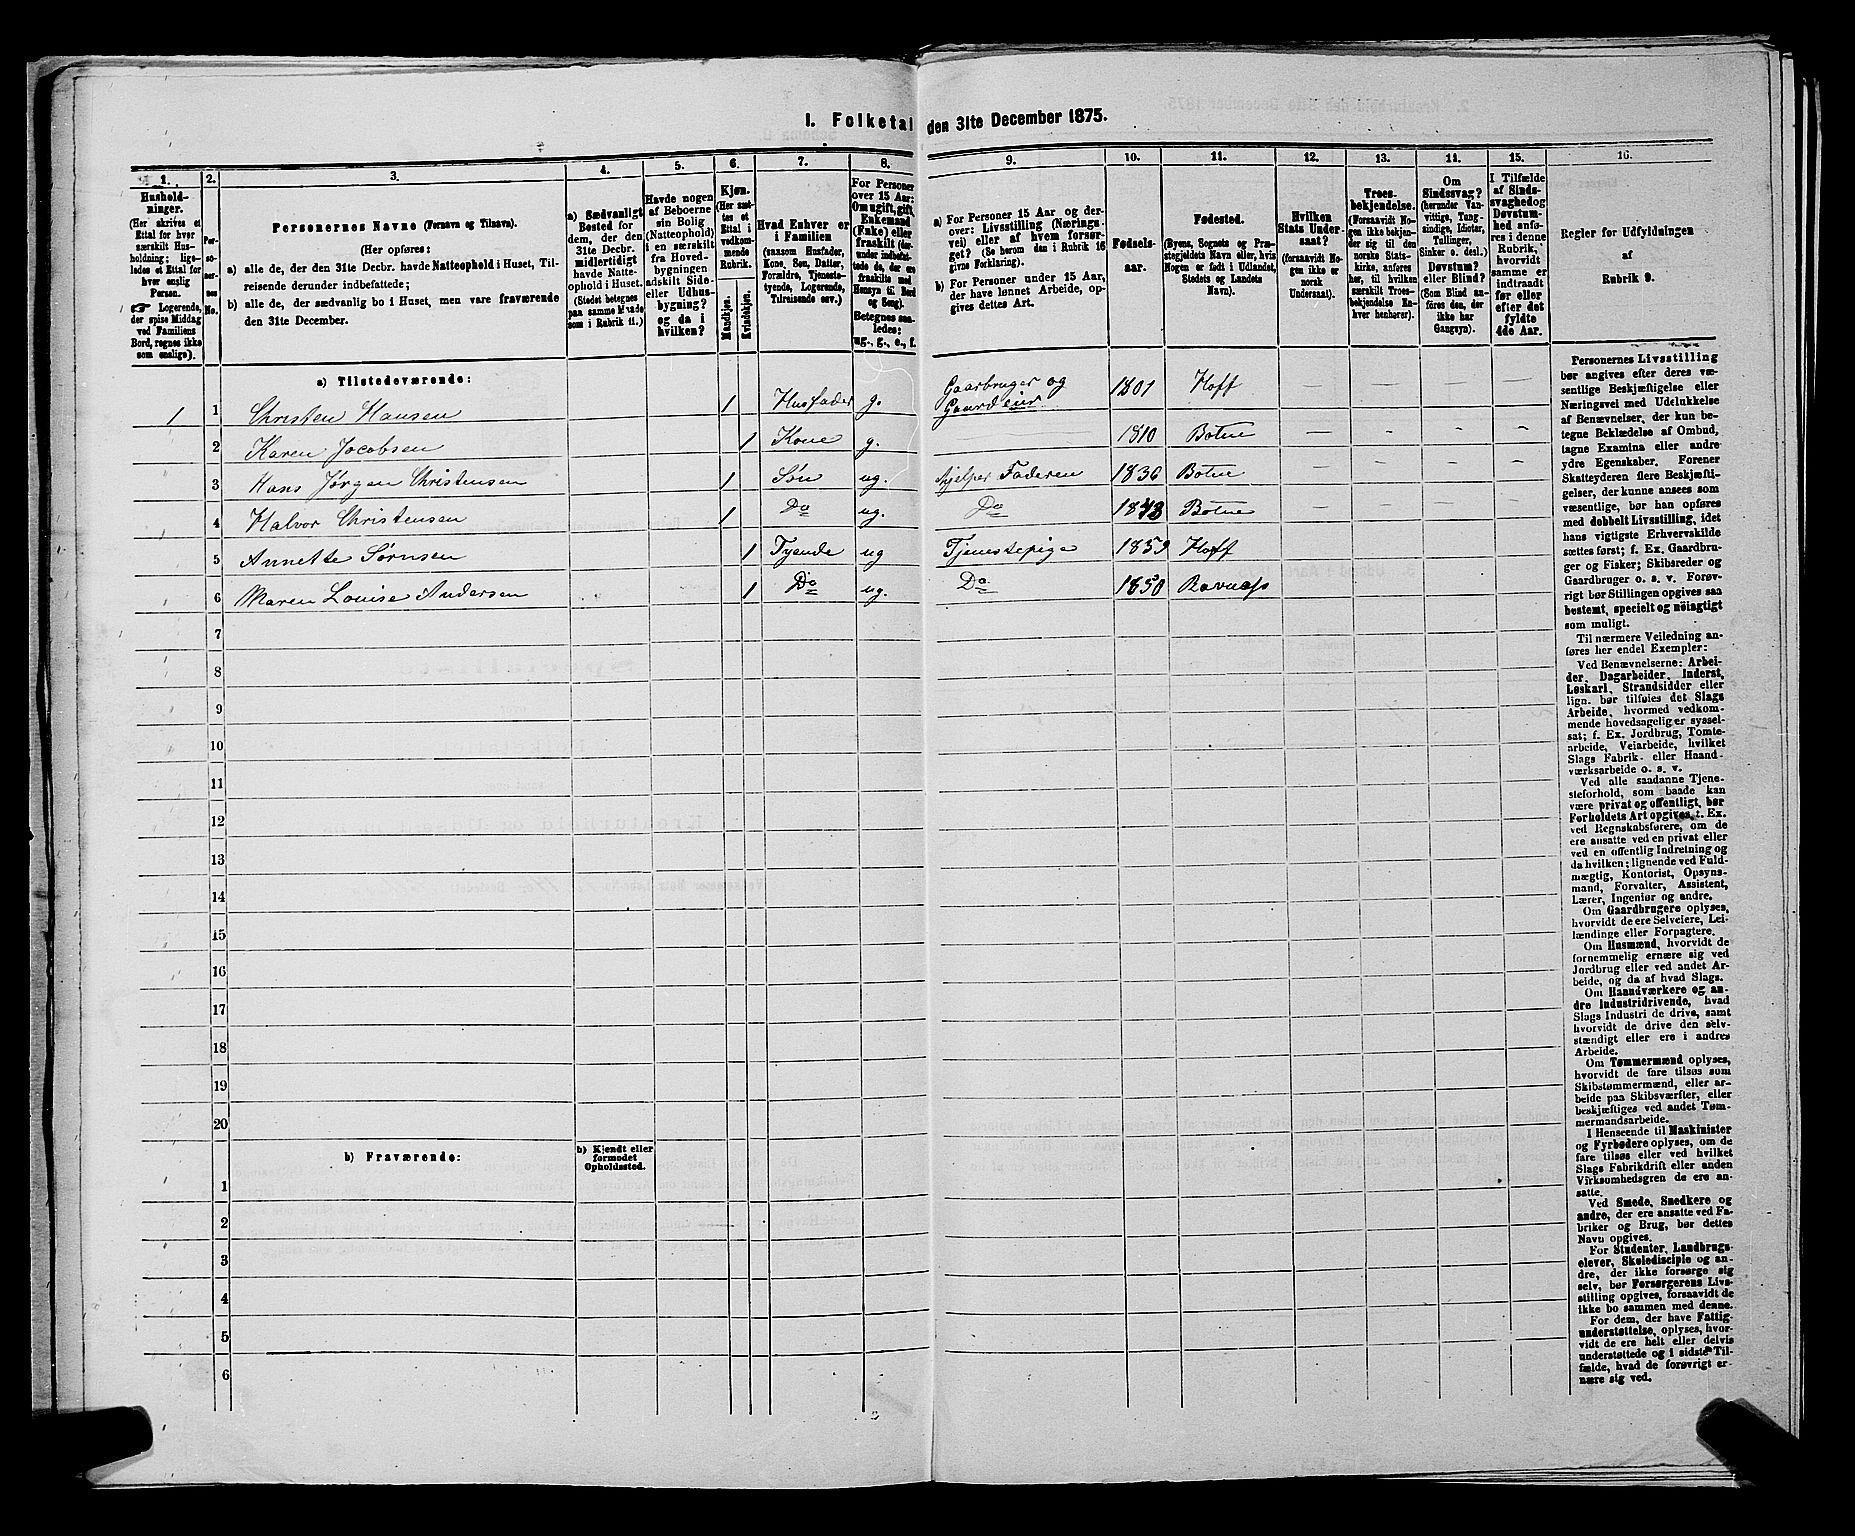 I. Folketal den 31te December 1875.
1. 2. 3. 4. 5. 6. 7. 8. 9. 10. 11. 12. 13. 14. 15. 16.
Hushold-
ninger.
(Her skrives et
Ettal for hver
særskilt Hus-
holdning; lige-
ledes et Ettal for
hver enslig
Person.
☞ Logerende,
der spise Middag
ved Familiens
Bord, regnes ikke
som enslige).
Per-
so-
ner-
nes
No.
Personernes Navne (Fornavn og Tilnavn).
(Her opføres:
a) alle de, der den 31te Decbr. havde Natteophold i Huset, Til-
reisende derunder indbefattede;
b) alle de, der sædvanlig bo i Huset, men vare fraværende
den 31te December.
a) Sædvanligt
Bosted for
dem, der den
31te Decbr.
midlertidigt
havde Natte-
ophold i Huset.
(Stedet betegnes
paa samme Maade
som i Rubrik 11.)
Havde nogen
af Beboerne
sin Bolig
(Natteophold)
i en særskilt
fra Hoved-
bygningen
adskilt Side-
eller Udhus-
bygning?
og da i
hvilken?
Kjøn.
(Her sæt-
tes et
Ettal i
vedkom-
mende
Rubrik.
Mandkjøn.
Kvindekjøn.
Hvad Enhver er
i Familien
(saasom Husfader,
Kone, Søn, Datter,
Forældre, Tjeneste-
tyende, Logerende,
Tilreisende osv.)
For Personer
over 15 Aar:
Om ugift, gift,
Enkemand
(Enke) eller
fraskilt (der-
under indbefat-
tede de, der ere
fraskilte med
Hensyn til Bord
og Seng).
Betegnes saa-
ledes:
ug., g., e., f.
a) For Personer 15 Aar og der-
over: Livsstilling (Nærings-
vei) eller af hvem forsør-
get? (Se herom den i Rubrik 16
givne Forklaring).
b) For Personer under 15 Aar,
der have lønnet Arbeide, op-
gives dettes Art.
Fødsels-
aar.
Fødested.
(Byens, Sognets og Præ-
stegjeldets Navn eller, hvis
Nogen er født i Udlandet,
Stedets og Landets
Navn).
Hvilken
Stats Under-
saat?
(forsaavidt No-
gen ikke er
norsk
Undersaat).
Troes-
bekjendelse.
(Forsaavidt No-
gen ikke bekjen-
der sig til den
norske Stats-
kirke, anføres
her, til hvilken
særskilt Troes-
bekjendelse En-
hver henhører).
Om
Sindssvag?
(herunder Van-
vittige, Tung-
sindige, Idioter,
Tullinger,
Sinker o. desl.)
Døvstum?
eller Blind?
(Som Blind an-
føres den, der
ikke har
Gangsyn).
I Tilfælde
af Sinds-
svaghed og
Døvstum-
hed anfø-
res i denne
Rubrik,
hvorvidt
samme er
indtraadt
før eller
efter det
fyldte
4de Aar.
Regler for Udfyldningen
af
Rubrik 9.
a) Tilstedeværende:
1 1 Christen Hansen 1 Husfader g. Gaarbruger og Gaardeier. 1801 Hoff — — — —
2 Karen Jacobsen 1 Kone g. 1810 Botne — — — —
3 Hans Jørgen Christensen 1 Søn ug. hjelper Faderen 1836 Botne — — — —
4 Halvor Christensen 1 Do ug. Do 1843 Botne — — — —
5 Annette Sørnsen 1 Tyende ug Tjenestepige 1859 Hoff
6 Maren Louise Andersen 1 Do ug. Do 1850 Ravnæss
7
8
9
10
11
12
13
14
15
16
17
18
19
20
b) Fraværende:
b) Kjendt eller
formodet
Opholdssted.
1
2
3
4
5
6
Personernes Livsstilling
bør angives efter deres væ-
sentlige Beskjæftigelse eller
Næringsvei med Udelukkelse
af Benævnelser, der kun be-
tegne Beklædelse af Ombud,
tagne Examina eller andre
ydre Egenskaber. Forener
Skatteyderen flere Beskjæfti-
gelser, der kunne ansees som
væsentlige, bør han opføres
med dobbelt Livsstilling, idet
hans vigtigste Erhvervskilde
sættes først; f. Ex. Gaardbru-
ger og Fisker; Skibsreder og
Gaardbruger o. s. v. Forøv-
rigt bør Stillingen opgives saa
bestemt, specielt og nöiagtigt
som muligt.
Til nærmere Veiledning an-
føres her endel Exempler:
Ved Benævnelserne: Arbei-
der, Dagarbeider, Inderst,
Løskarl, Strandsidder eller
lign. bør tilføies det Slags
Arbeide, hvormed vedkom-
mende hovedsagelig er syssel-
sat; f. Ex. Jordbrug, Tomte-
arbeide, Veiarbeide, hvilket
Slags Fabrik- eller Haand-
værksarbeide o. s. v.
Ved alle saadanne Tjene-
steforhold, som baade kan
være privat og offentligt, bør
Forholdets Art opgives, f. Ex.
ved Regnskabsførere, om de
ere ansatte ved en privat eller
ved en offentlig Indretning og
da hvilken; lignende ved Fuld-
mægtig, Kontorist, Opsyns-
mand, Forvalter, Assistent,
Lærer, Ingeniør og andre.
Om Gaardbrugere oplyses,
hvorvidt de ere Selveiere, Lei-
lændinge eller Forpagtere.
Om Husmænd, hvorvidt de
fornemmelig ernære sig ved
Jordbrug eller ved andet Ar-
beide, og da af hvad Slags.
Om Haandværkere og an-
dre Industridrivende, hvad
Slags Industri de drive, samt
hvorvidt de drive den selv-
stændigt eller ere i andres
Arbeide.
Om Tømmermænd oplyses,
hvorvidt de fare tilsøs som
Skibstømmermænd, eller ar-
beide paa Skibsværfter, eller
beskjæftiges ved andet Tøm-
mermandsarbeide.
I Henseende til Maskinister
og Fyrbødere oplyses, om de
fare tilsøs eller ved hvilket
Slags Fabrikdrift eller anden
Virksomhedsgren de ere an-
satte.
Ved Smede, Snedkere og
andre, der ere ansatte ved Fa-
briker og Brug, bør dettes
Navn opgives.
For Studenter, Landbrugs-
elever, Skoledisciple og an-
dre, der ikke forsørge sig
selv, bør Forsørgerens Livs-
stilling opgives, forsaavidt de
ikke bo sammen med denne.
For dem, der have Fattig-
understøttelse, oplyses, hvor-
vidt de ere helt eller delvis
understøttede og i sidste Til-
fælde, hvad de forøvrigt er-
nære sig ved.